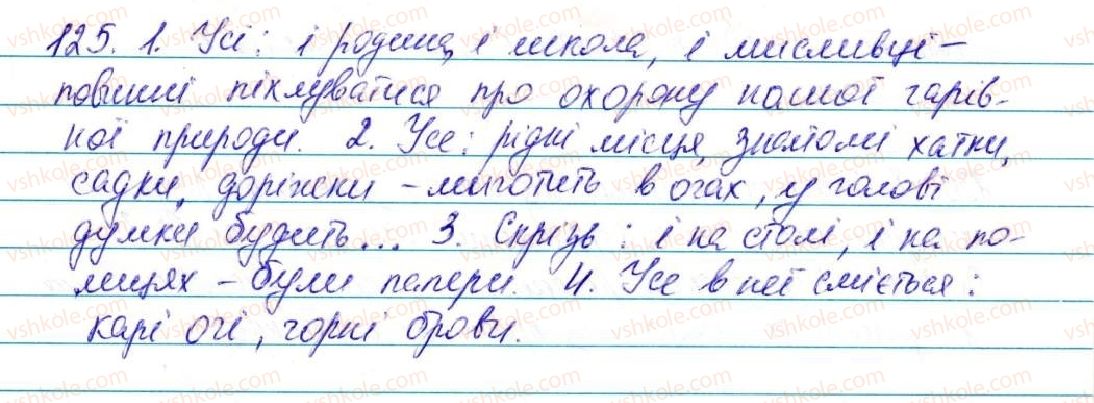 125. 1. Усі: і родина, і школа, і мисливці –
повинні піклуватися про охорону нашої чарів-
ної природи. 2. Усе: рідні місця, знайомі хатки,
садки, доріжки – миготить в очах, у голові
думки будить... 3. Скрізь: і на столі, і на по-
лицях – були папери. 4. Усе в неї сміється:
карі очі, чорні брови.